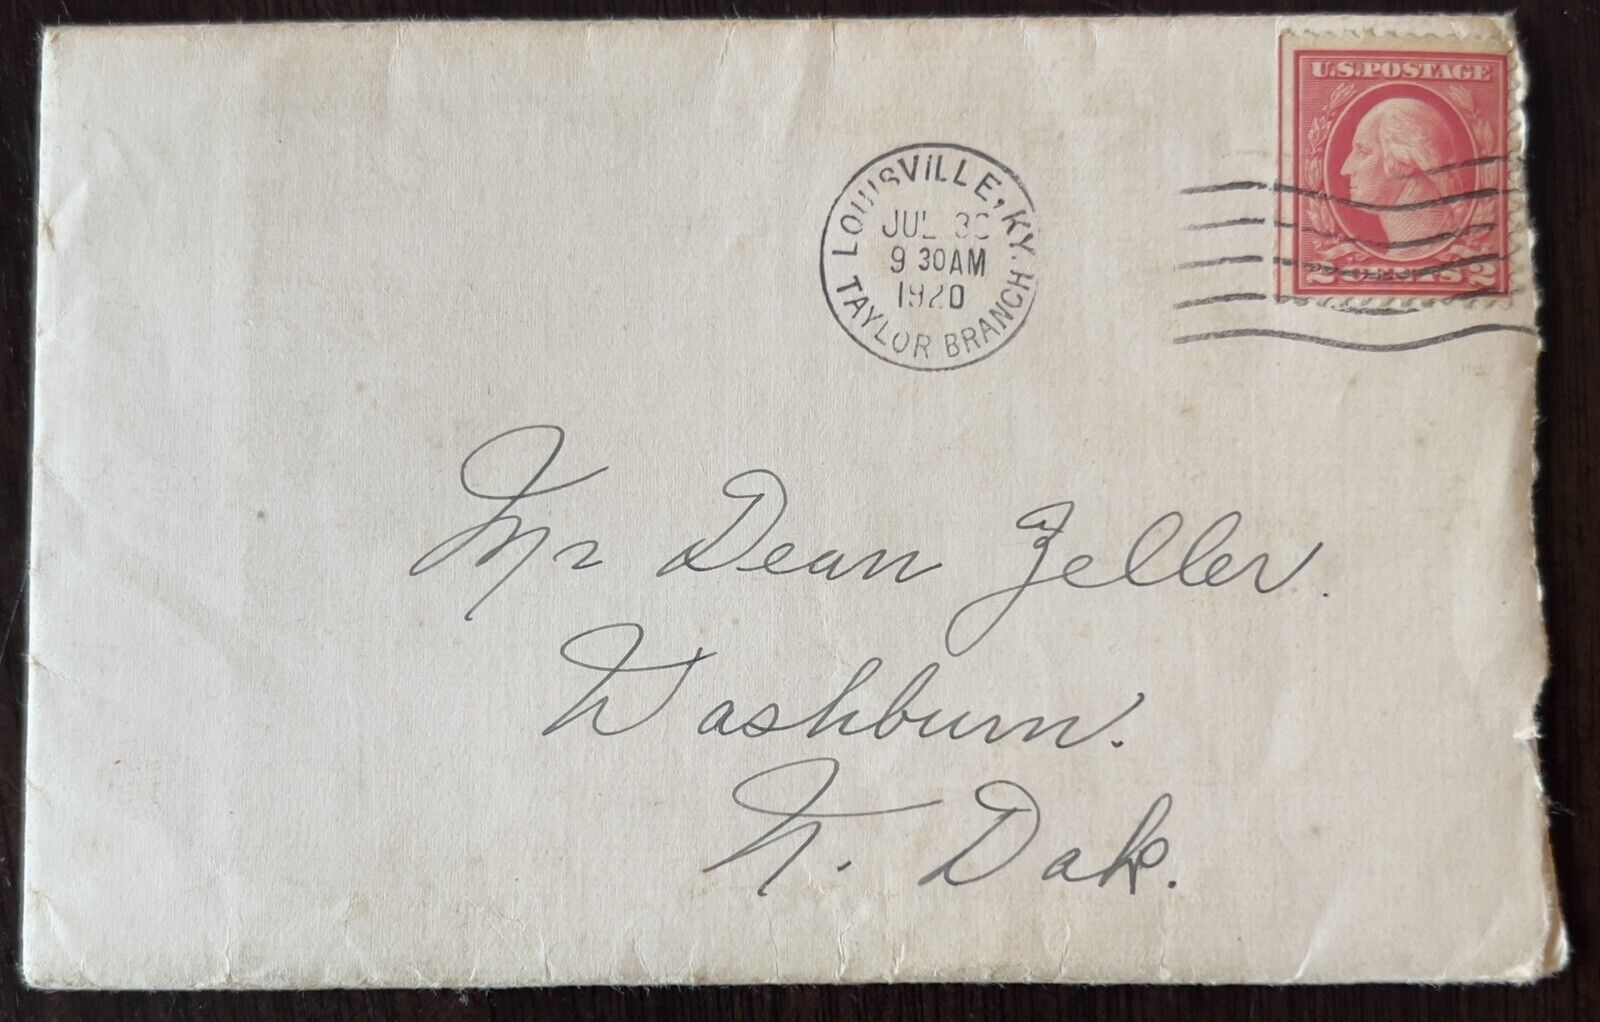 U.S. POSTAGE
2 CENTS 2
LOUISVILLE, KY.
JUL 30
9 30 AM
1920
TAYLOR BRANCH
Mr Dean Zeller.
Washburn.
N. Dak.